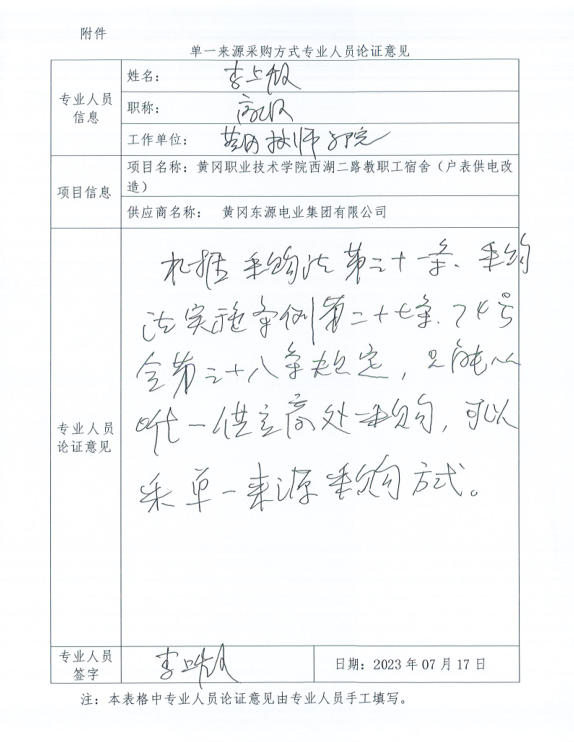 附件
单一来源采购方式专业人员论证意见
专业人员
信息
姓名：
李上
职称：
高级
工作单位：
黄冈 师 院
项目信息
项目名称：黄冈职业技术学院西湖二路教职工宿舍（户表供电改
造）
供应商名称： 黄冈东源电业集团有限公司
专业人员
论证意见
根据采购法第三十一条、采购
法实施条例第二十七条、74号
令第三十八条规定，只能从
唯一供应商处采购，可以
采单一来源采购方式。
专业人员
签字
李上
日期：2023 年 07 月 17 日
注：本表格中专业人员论证意见由专业人员手工填写。